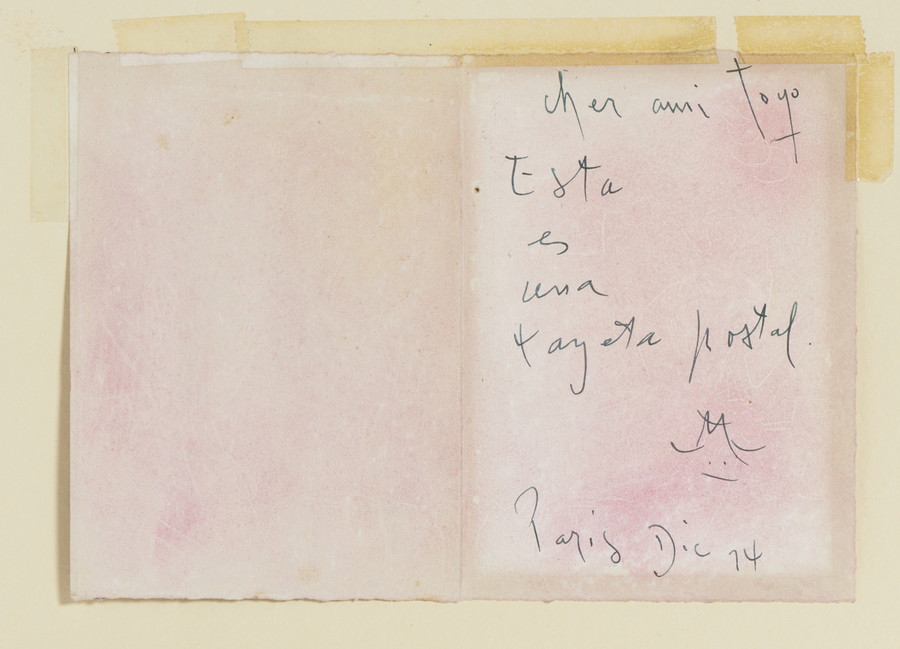 cher ami Toyo
Esta
es
una
tarjeta postal.
M
Paris Dic 74